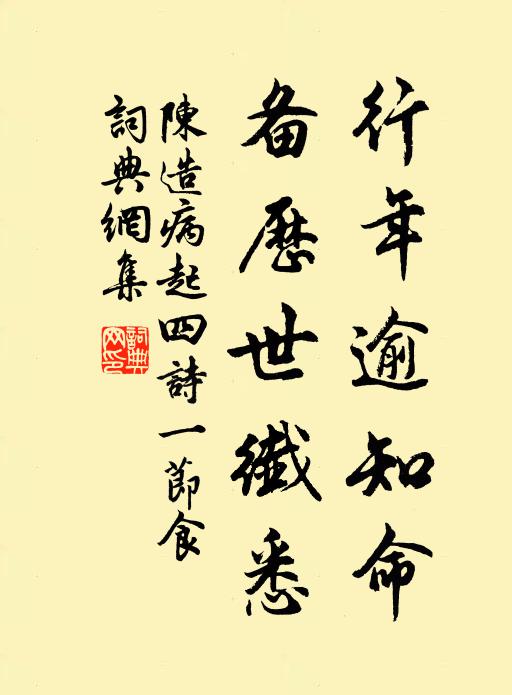 行年逾知命
备歷世纖悉
陳造病起四詩一節食
詞典網集
詞典
网印